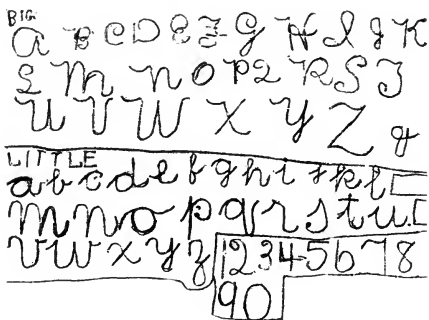 BIG:
a B C D E F G H I J K
L M N O P Q R S T
U V W X Y Z &
LITTLE
a b c d e f g h i j k l
m n o p q r s t u
v w x y z 1 2 3 4 5 6 7 8
9 0